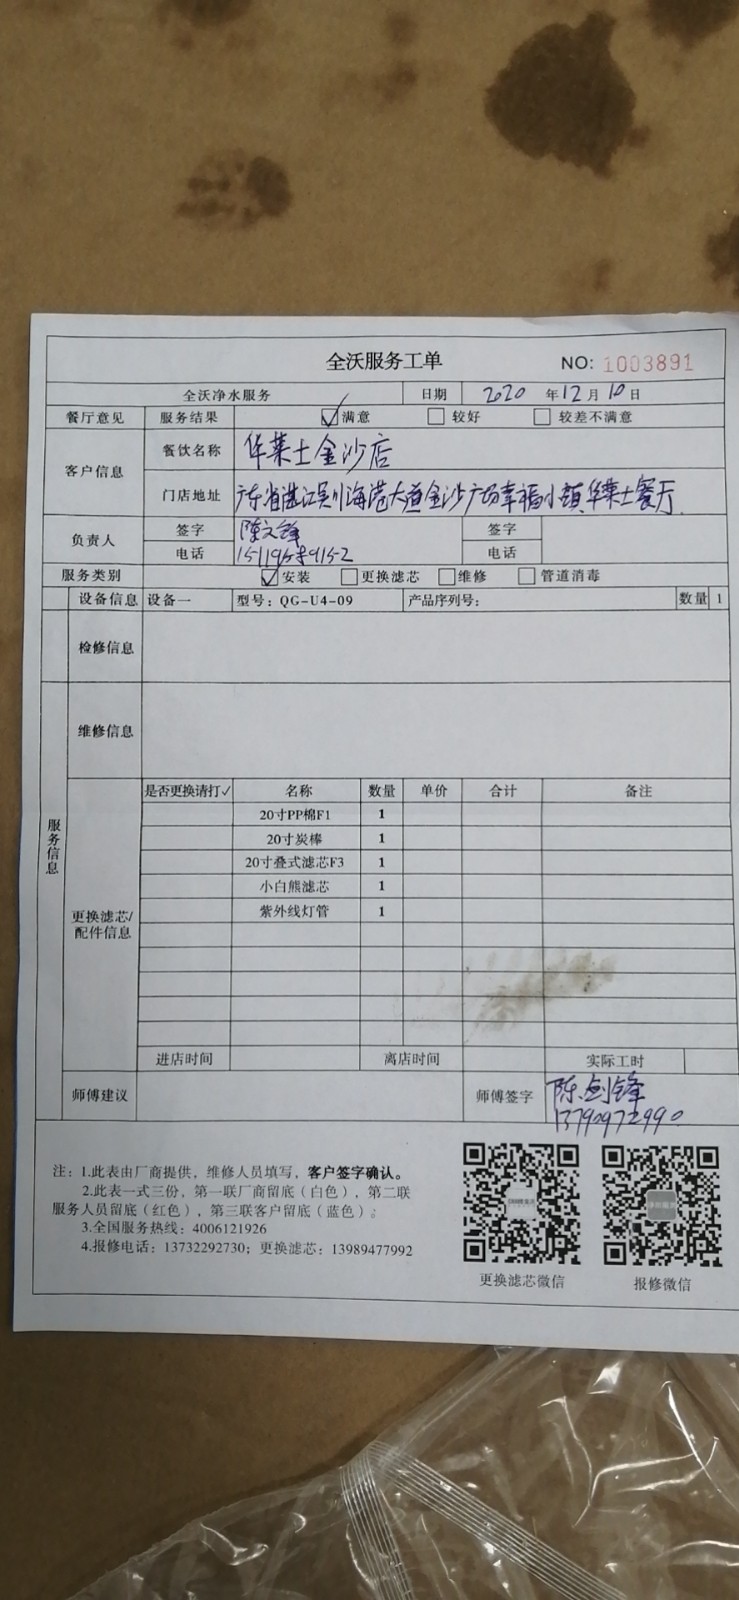 全沃服务工单 NO: 1003891
全沃净水服务 日期 2020 年 12 月 10 日
餐厅意见 服务结果 ☑满意 □较好 □较差不满意
客户信息 餐饮名称 华莱士金沙店
门店地址 广东省湛江吴川海港大道金沙广场幸福小镇华莱士餐厅
负责人 签字 陈文锋 签字
电话 电话
服务类别 ☑安装 □更换滤芯 □维修 □管道消毒
设备信息 设备一 型号：QG-U4-09 产品序列号： 数量 1
检修信息
维修信息
服务信息
更换滤芯/配件信息
是否更换请打✓ 名称 数量 单价 合计 备注
20寸PP棉F1 1
20寸炭棒 1
20寸叠式滤芯F3 1
小白熊滤芯 1
紫外线灯管 1
进店时间 离店时间 实际工时
师傅建议 师傅签字 陈剑锋
13790972990
注：1.此表由厂商提供，维修人员填写，客户签字确认。
2.此表一式三份，第一联厂商留底（白色），第二联
服务人员留底（红色），第三联客户留底（蓝色）。
3.全国服务热线：4006121926
4.报修电话：13732292730；更换滤芯：13989477992
更换滤芯微信 报修微信